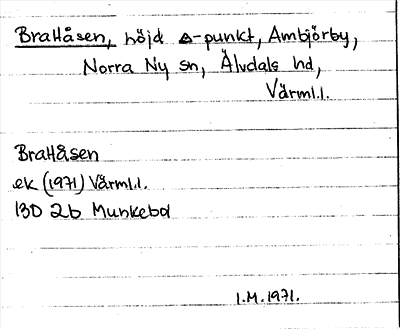 Brattåsen, höjd △-punkt, Ambjörby,
Norra Ny sn, Älvdals hd,
Värml.l.
Brattåsen
ek (1971) Värml.l.
13D 2b Munkebol
I.M. 1971.